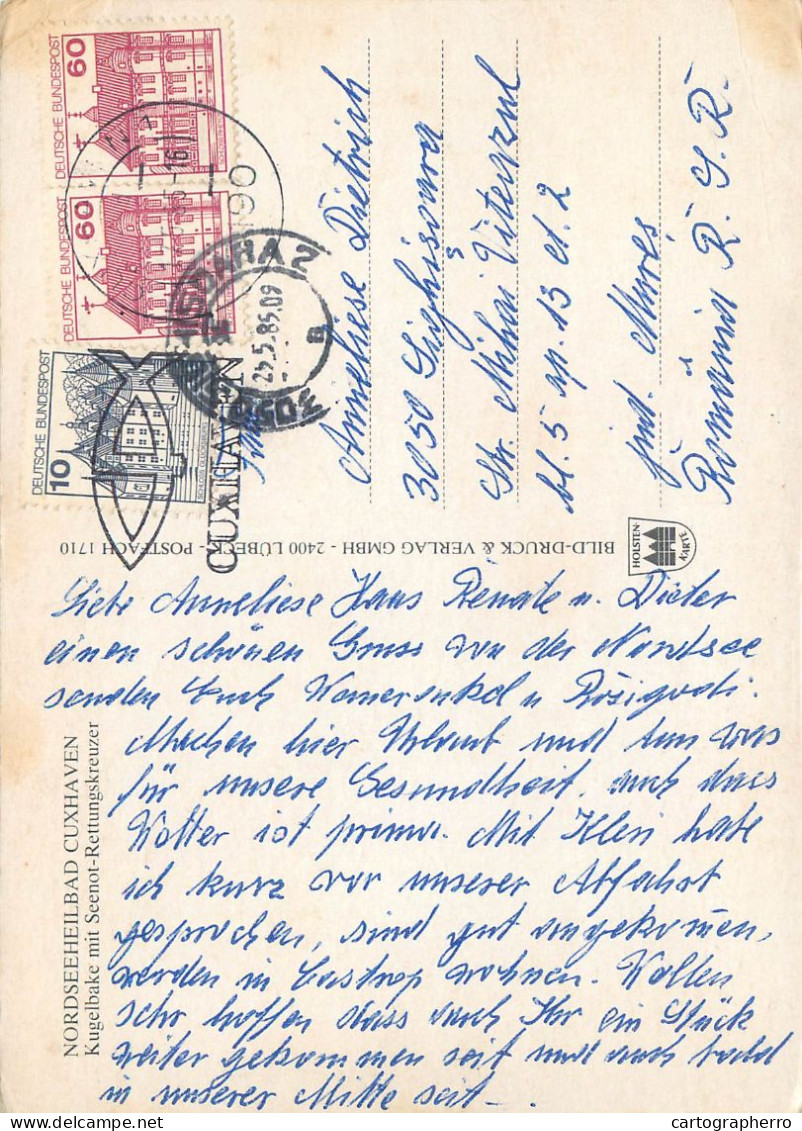 NORDSEEHEILBAD CUXHAVEN
Kugelbake mit Seenot-Rettungskreuzer
Liebe Anneliese Hans Renate u. Dieter
einen schönen Gruss von der Nordsee
senden Euch u
Machen hier Urlaub und tun was
für unsere Gesundheit, auch dass
Wetter ist prima. Mit habe
ich kurz vor unserer Abfahrt
gesprochen, sind gut angekommen,
werden in Castrop wohnen. Wollen
sehr hoffen dass auch Ihr ein Stück
weiter gekommen seit und auch bald
in unserer Mitte seit –.
BILD-DRUCK & VERLAG GMBH - 2400 LÜBECK - POSTFACH 1710
HOLSTEN-
KARTE
DEUTSCHE BUNDESPOST
60
DEUTSCHE BUNDESPOST
60
DEUTSCHE BUNDESPOST
10
CUXHAVEN
5.85.09
B
Anneliese Dietrich
3050 Sighisoara
Str. Mihai Viteazul
bl. 5 ap. 13 et. 2
jud. Mureș
România R. S. R.
cartographerro